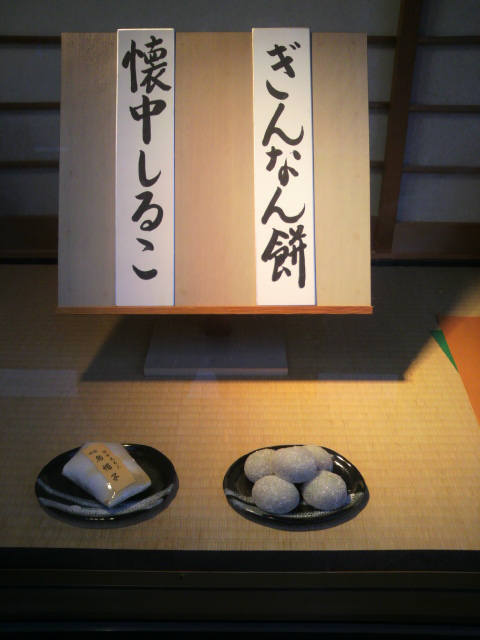 ぎんなん餅
懐中しるこ